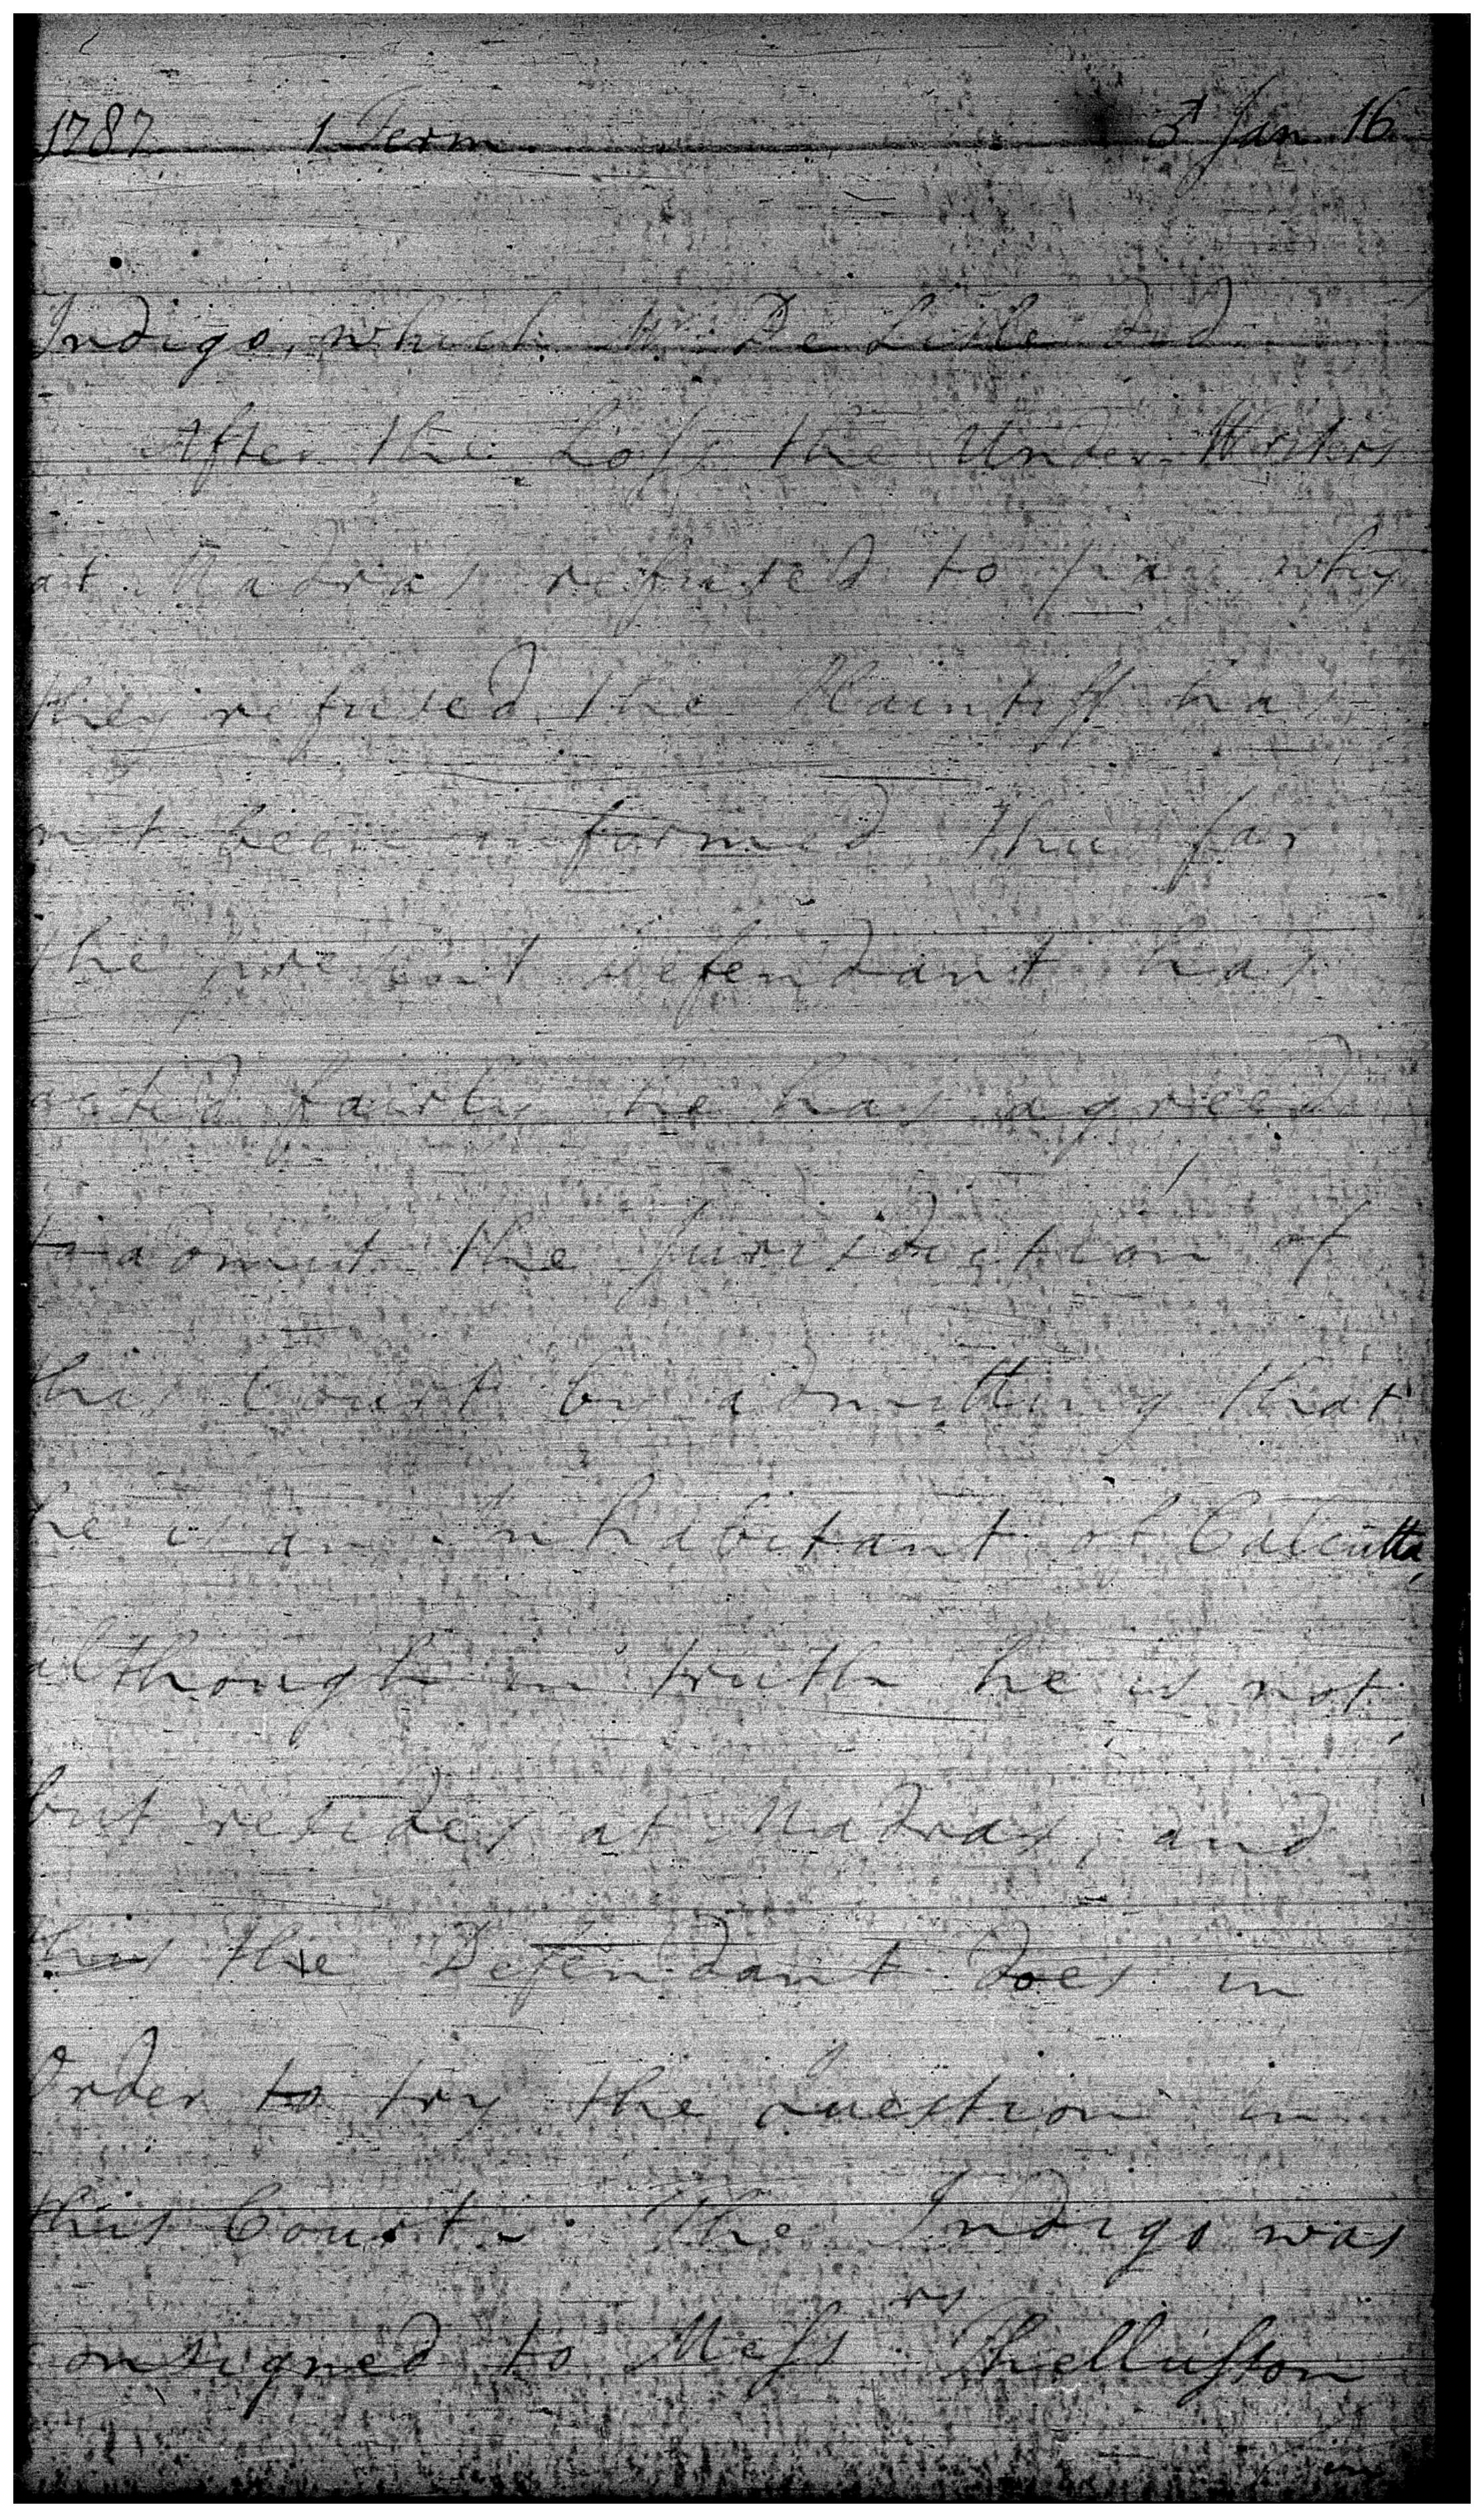 1787 1 Term. ♂ Jan 16
Indigo, which Mr De Lisle did
After the Loss the Under-Writers
at Madras refused to pay why
they refused the Plaintiff has
not been informed thus far
the present defendant has
acted fairly he has agreed
to admit the Jurisdiction of
this Court by admitting that
he is an Inhabitant of Calcutta,
although in truth he is not,
but resides at Madras, and
this the Defendant does in
Order to try the Question in
this Court. The Indigo was
consigned to Messrs Thellusson